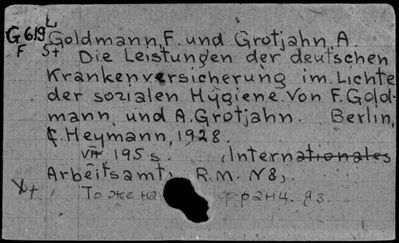 G 619 Goldmann, F. und Grotjahn, A.
F 5+ Die Leistungen der deutschen
Krankenversicherung im Lichte
der sozialen Hygiene. Von F. Gold-
mann und A. Grotjahn. Berlin,
C. Heymann, 1928.
VII, 195 s. (Internationales
Arbeitsamt. R.M. N8)
То же на франц. яз.